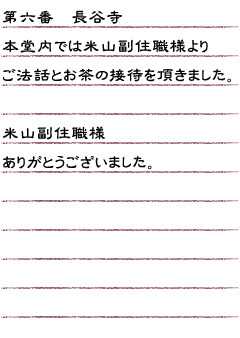 第六番　長谷寺
本堂内では米山副住職様より
ご法話とお茶の接待を頂きました。
米山副住職様
ありがとうございました。